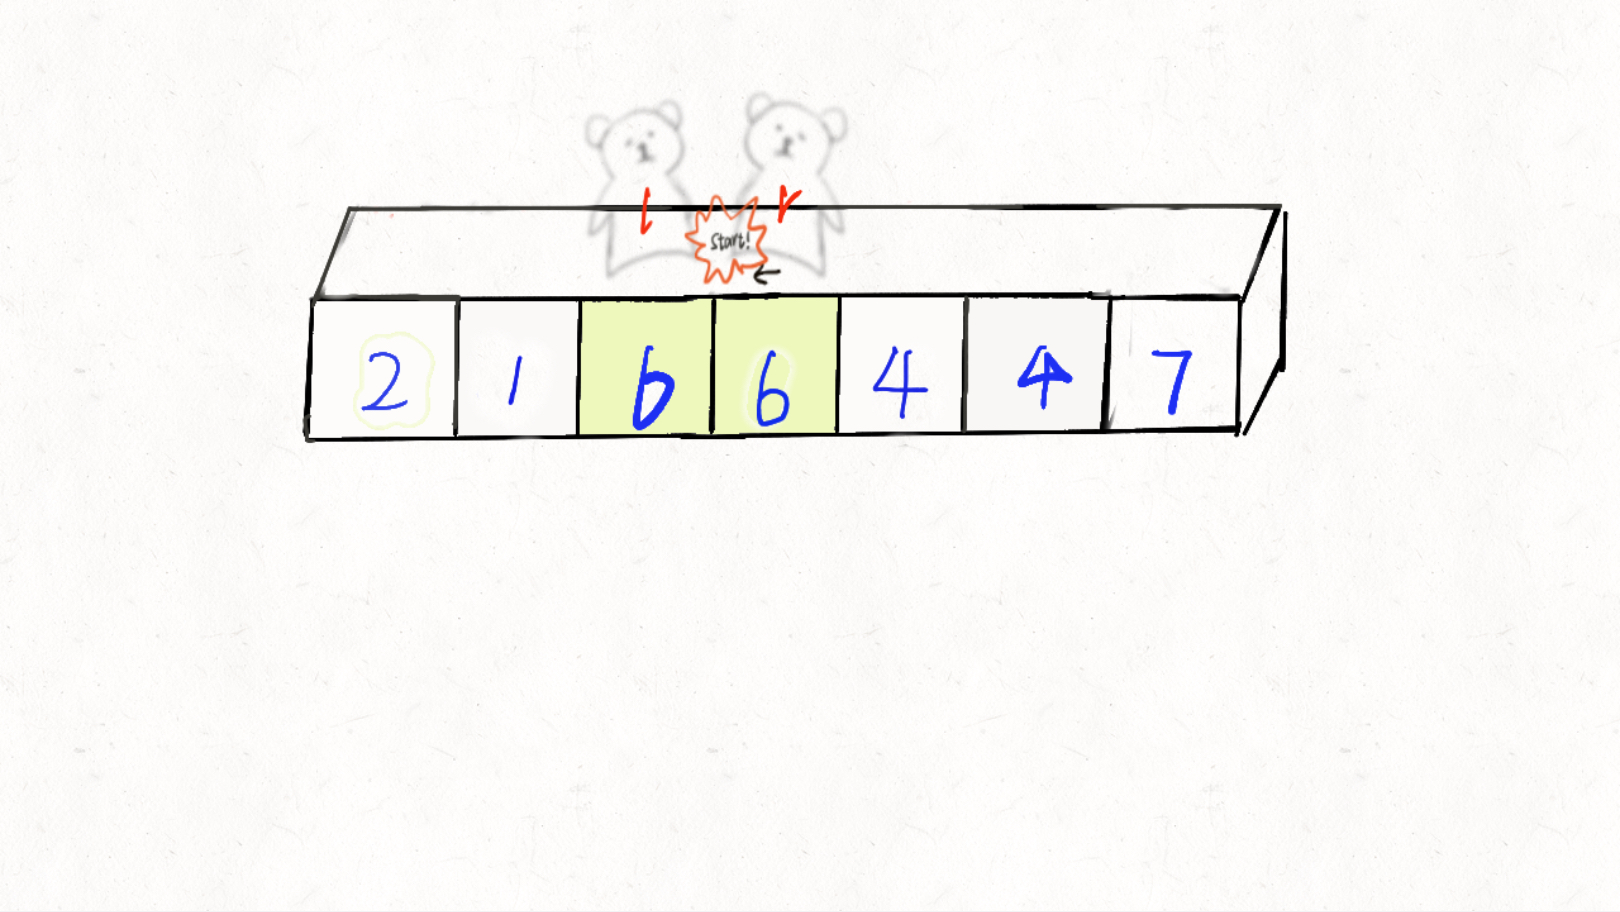 l r
Start!
←
2 1 6 6 4 4 7